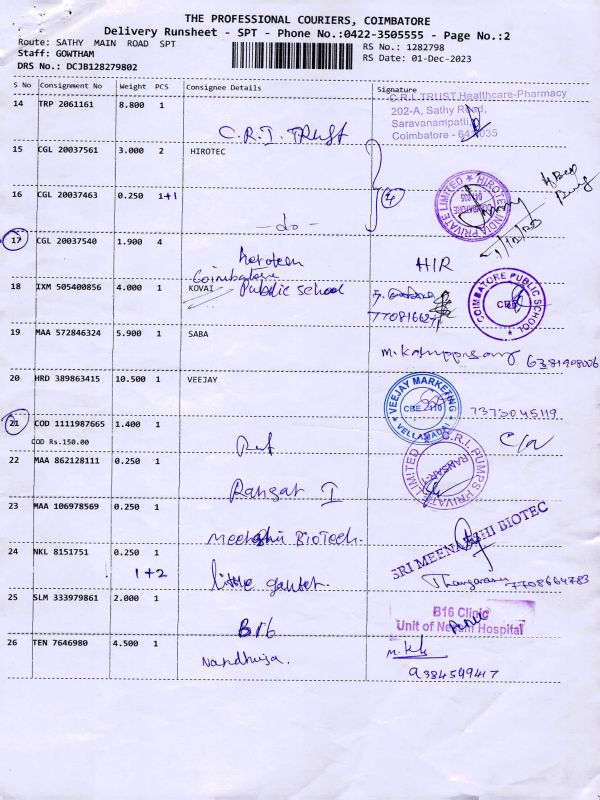 THE PROFESSIONAL COURIERS, COIMBATORE
Delivery Runsheet - SPT - Phone No.:0422-3505555 - Page No.:2
Route: SATHY MAIN ROAD SPT
Staff: GOWTHAM
DRS No.: DCJB128279802
RS No.: 1282798
RS Date: 01-Dec-2023
S No Consignment No Weight PCS Consignee Details Signature
14 TRP 2061161 8.800 1 C.R.I. TRUST
C.R.I. TRUST Healthcare-Pharmacy
202-A, Sathy Road,
Saravanampatti,
Coimbatore - 641035
15 CGL 20037561 3.000 2 HIROTEC
4
HIROTEC INDIA PRIVATE LIMITED
16 CGL 20037463 0.250 1+1 -do-
17 CGL 20037540 1.900 4 HIR
Coimbatore
18 IXM 505400856 4.000 1 KOVAI Public School
COIMBATORE PUBLIC SCHOOL
CBE
19 MAA 572846324 5.900 1 SABA
6381908006
20 HRD 389863415 10.500 1 VEEJAY
VEEJAY MARKETING
CBE 110
7373045119
21 COD 1111987665 1.400 1 Ref
COD Rs.150.00
C.R.I. PUMPS PRIVATE LIMITED
22 MAA 862128111 0.250 1 Ransar I
23 MAA 106978569 0.250 1 BIOTech.
SRI MEENAKSHI BIOTEC
24 NKL 8151751 0.250 1
1+2 little
7708664783
25 SLM 333979861 2.000 1 B16
B16 Clinic
Unit of Hospital
26 TEN 7646980 4.500 1
9384599417